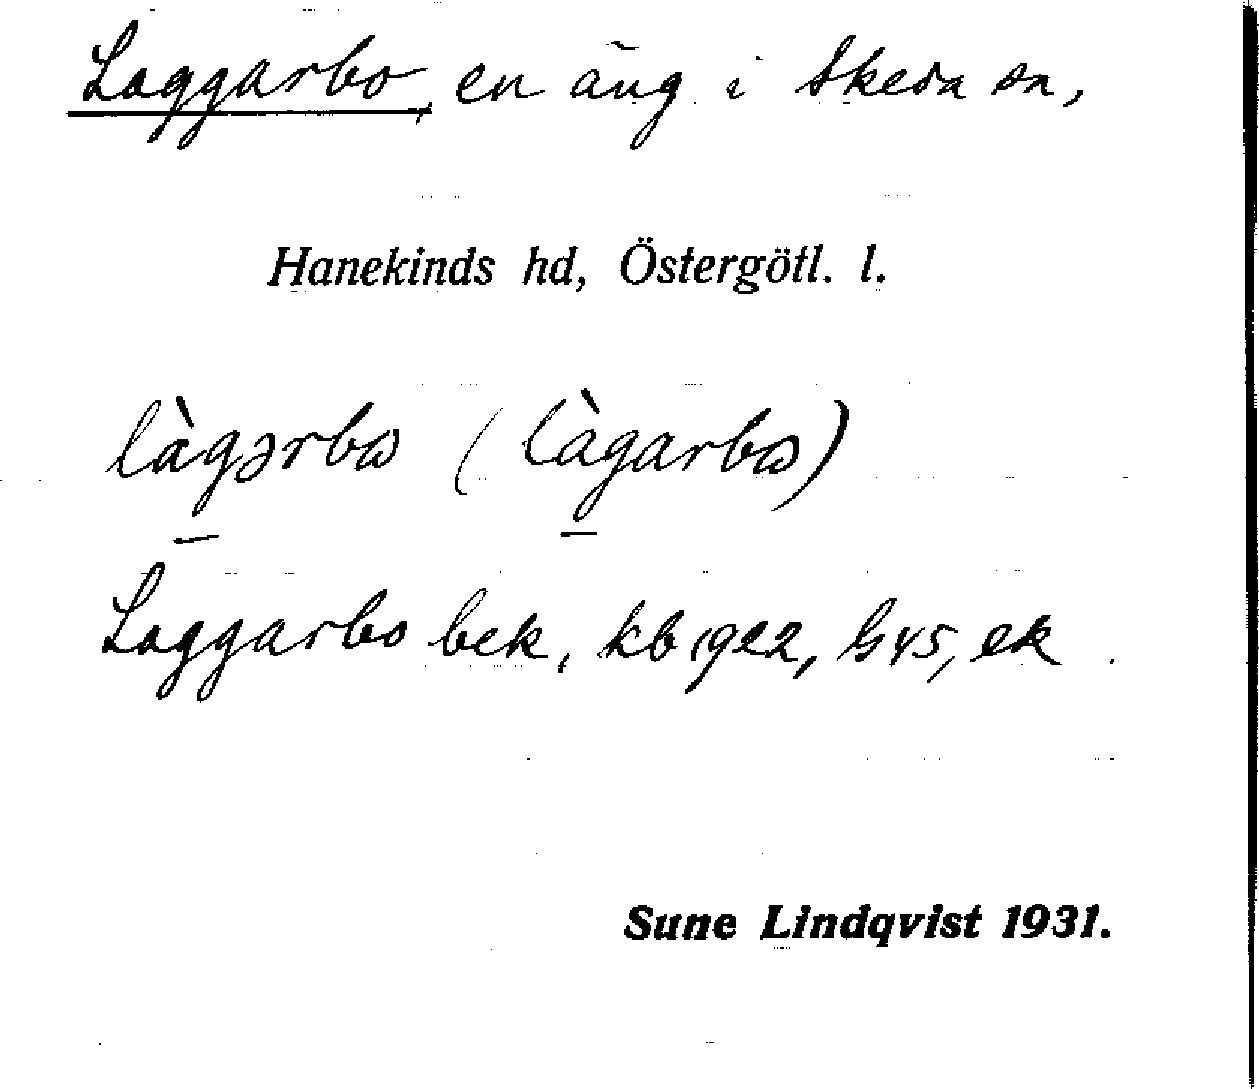 Laggarbo, en äng i Skeda sn,
Hanekinds hd, Östergötl. l.
làgərbɷ (làgarbɷ)
Laggarbo bek, kb 1922, G 45, ek.
Sune Lindqvist 1931.